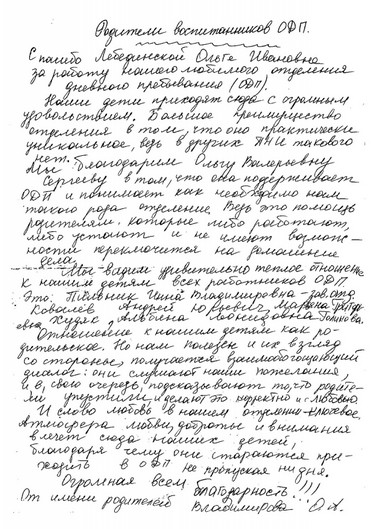 Родители воспитанников ОДП.
Спасибо Лебединской Ольга Ивановна
за работу нашего любимого отделения
дневного пребывания (ОДП).
Наши дети приходят сюда с огромным
удовольствием. Большое преимущество
отделения в том, что оно практически
уникальное, ведь в других ПНИ такового
нет.
Мы благодарим Ольгу Валерьевну
Сергееву в том, что она поддерживает
ОДП и понимает как необходимо нам
такого рода отделение. Ведь это помощь
родителям, которые либо работают,
либо устают и не имеют возмож-
ности переключится на домашние
дела.
Мы видим удивительно теплое отношение
к нашим детям всех работников ОДП.
Это: Нина Владимировна зав. отд.
Ковалёв Андрей Юрьевич, Марина
Худяк, Альбина
Отношение к нашим детям как ро-
дительское. Но нам полезен и их взгляд
со стороны, получается взаимообогащающий
диалог: они слушают наши пожелания,
и в, свою очередь, подсказывают то, что родите-
ли упустили и делают это корректно и с любовью.
И слово любовь в нашем отделении - ключевое.
Атмосфера любви, доброты и внимания
влечёт сюда наших детей,
благодаря чему они стараются при-
ходить в ОДП не пропуская ни дня.
Огромная всем благодарность!!!!
От имени родителей Владимирова О.А.